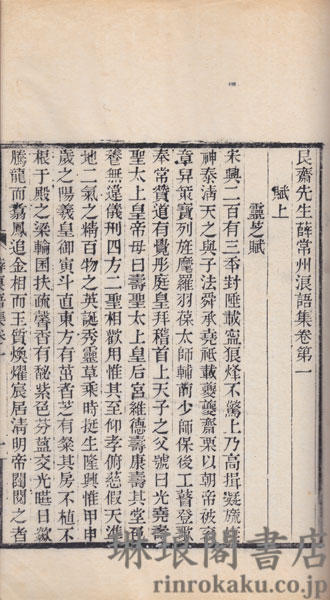 艮齋先生薛常州浪語集卷第一
賦上
靈芝賦
宋興二百有三季封陲載謐狼烽不驚上乃高拱凝旒
神泰淸天之與子法舜承堯祗載夔夔齋栗以朝帝被袞
章昇策寶列旌麾羅羽葆太師輔前少師保後工瞽登歌
奉常贊道有覺彤庭皇拜稽首上天子之父號曰光堯壽
聖太上皇帝母曰壽聖太上皇后宮維德壽康壽其堂邑
卷無違儀刑四方二聖相歡用惟其至仰孝俯慈假天準
地二气之精百物之英誕秀靈草乘時挺生隆興惟甲申
歲之陽義皇御寅斗直東方有茁者芝有粲其房不植不
根于殿之梁輪囷扶疏馨香有馝紫色芬葢交光暀日歘
騰龍而翥鳳追金相而玉質煥燿宸居淸明帝闥閟之者
琳琅閣書店
rinrokaku.co.jp